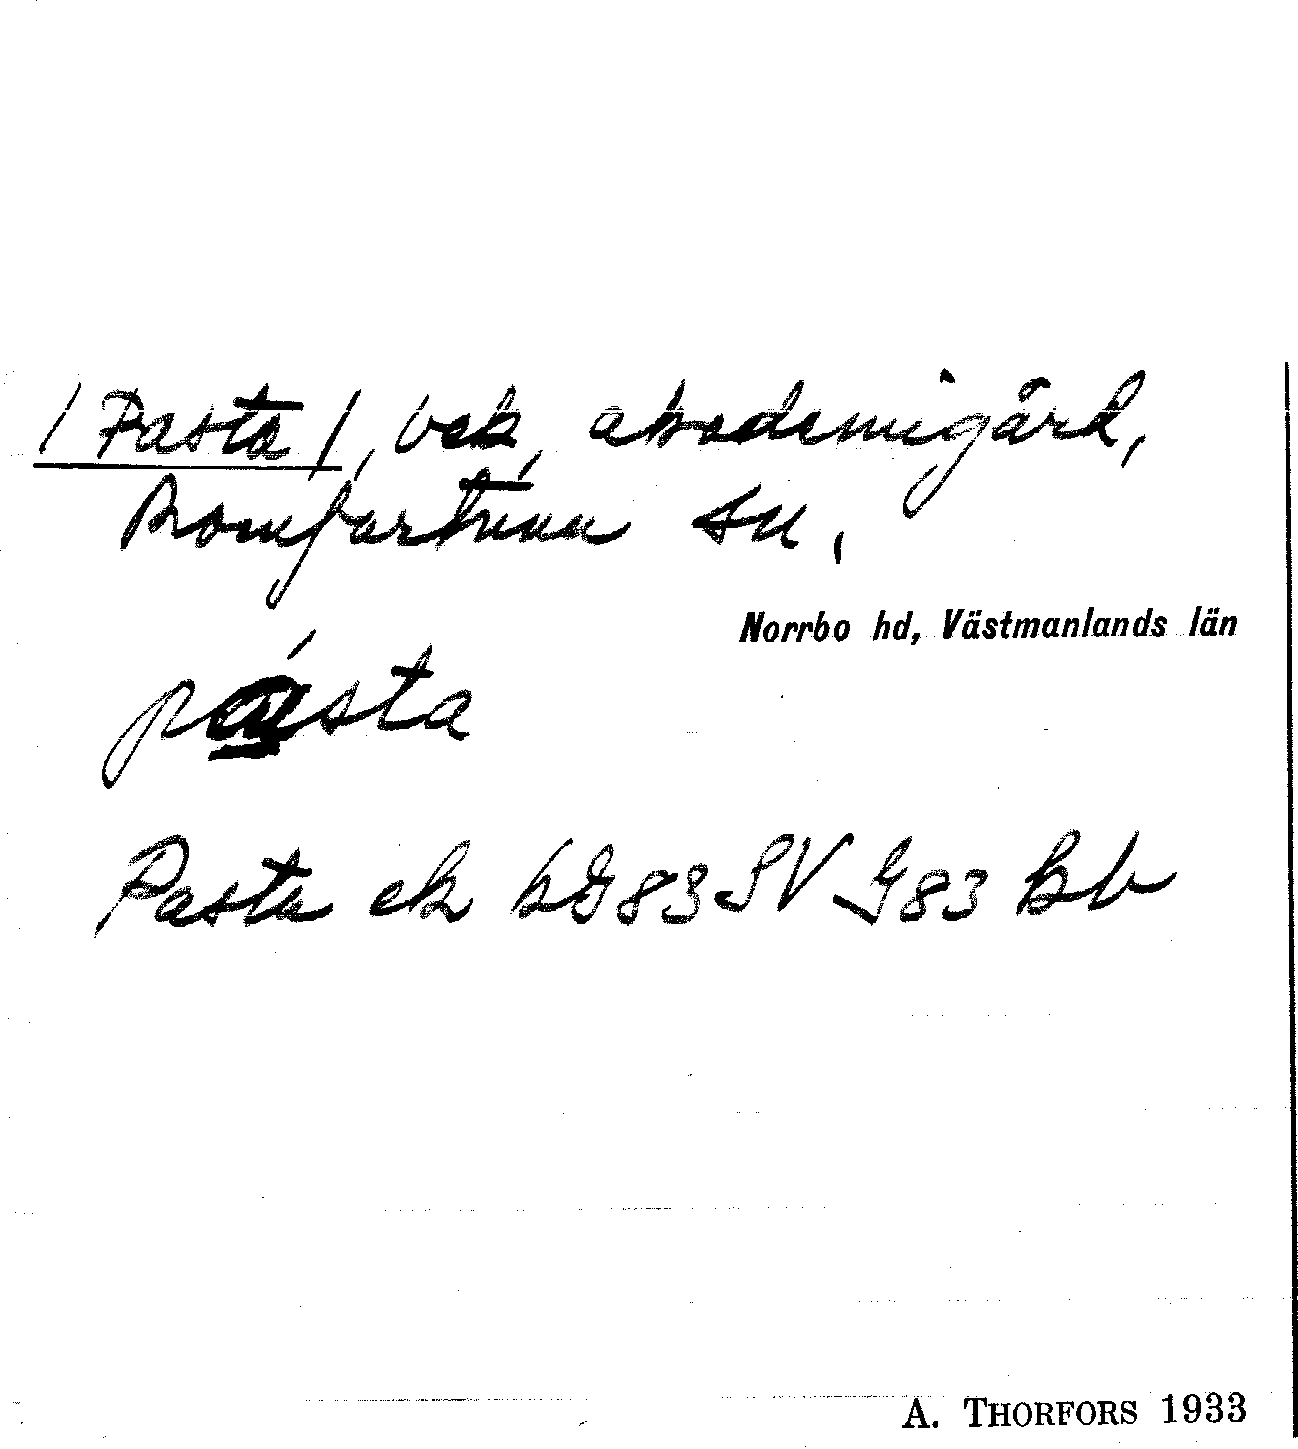 /Pasta/, bek, akademigård,
Romfartuna sn,
Norrbo hd, Västmanlands län
pásta
Pasta ek bG83SV G83 Bb
A. THORFORS 1933